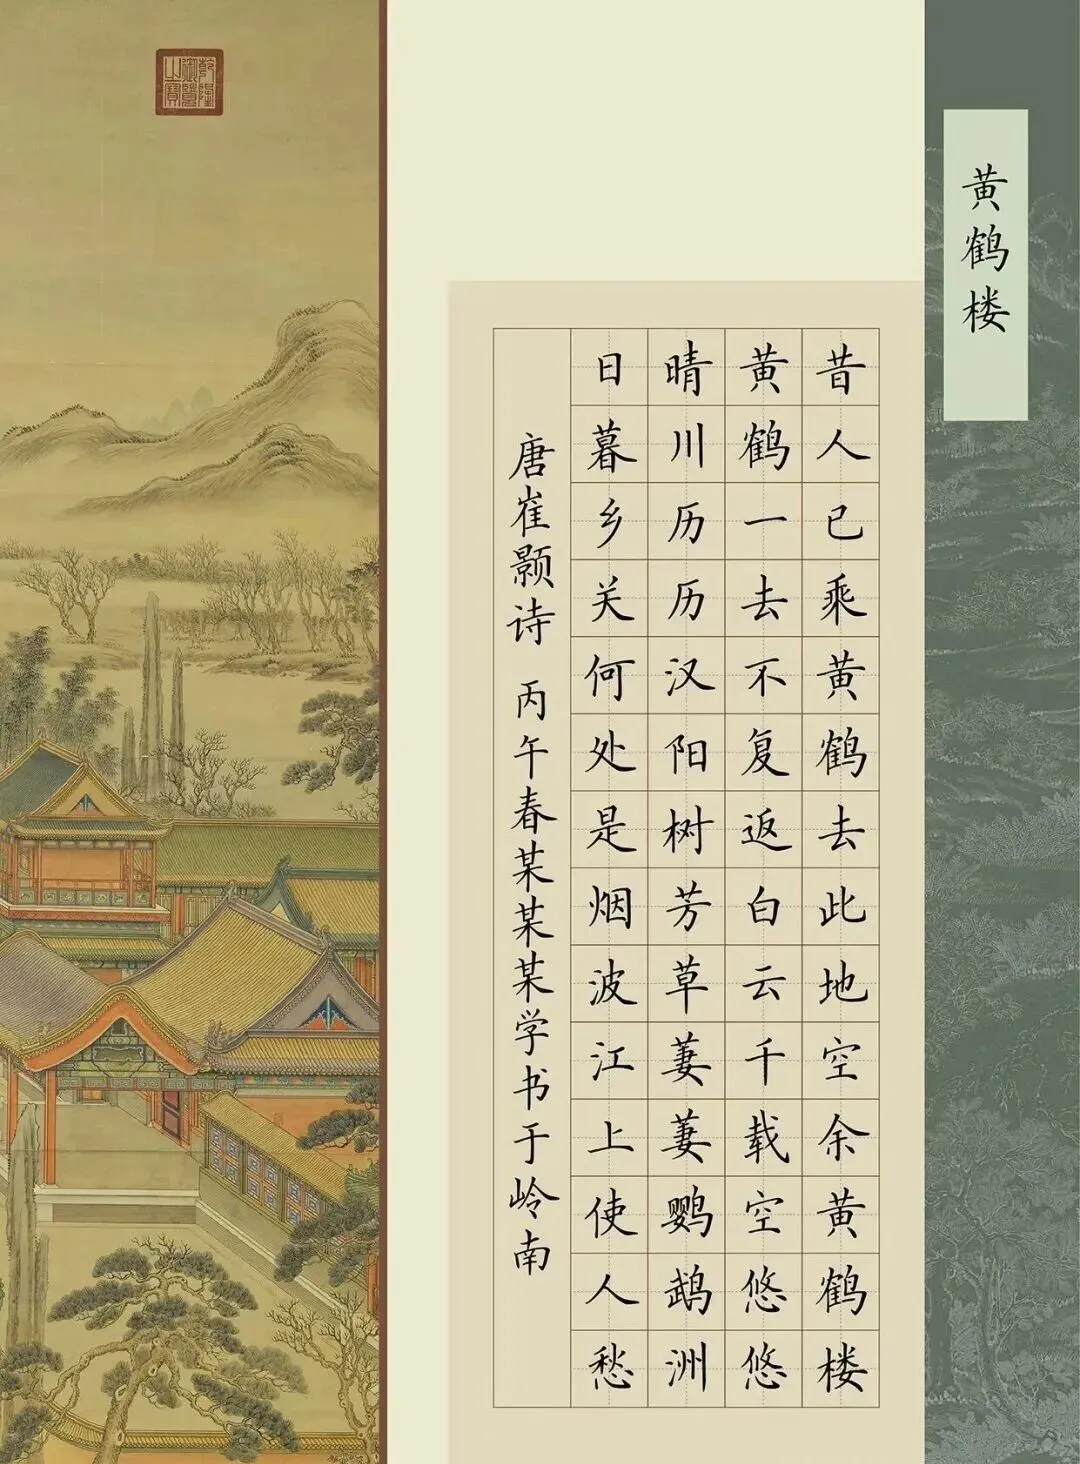 黄鹤楼
昔人已乘黄鹤去此地空余黄鹤楼
黄鹤一去不复返白云千载空悠悠
晴川历历汉阳树芳草萋萋鹦鹉洲
日暮乡关何处是烟波江上使人愁
唐崔颢诗 丙午春某某某学书于岭南
乾隆御览之宝